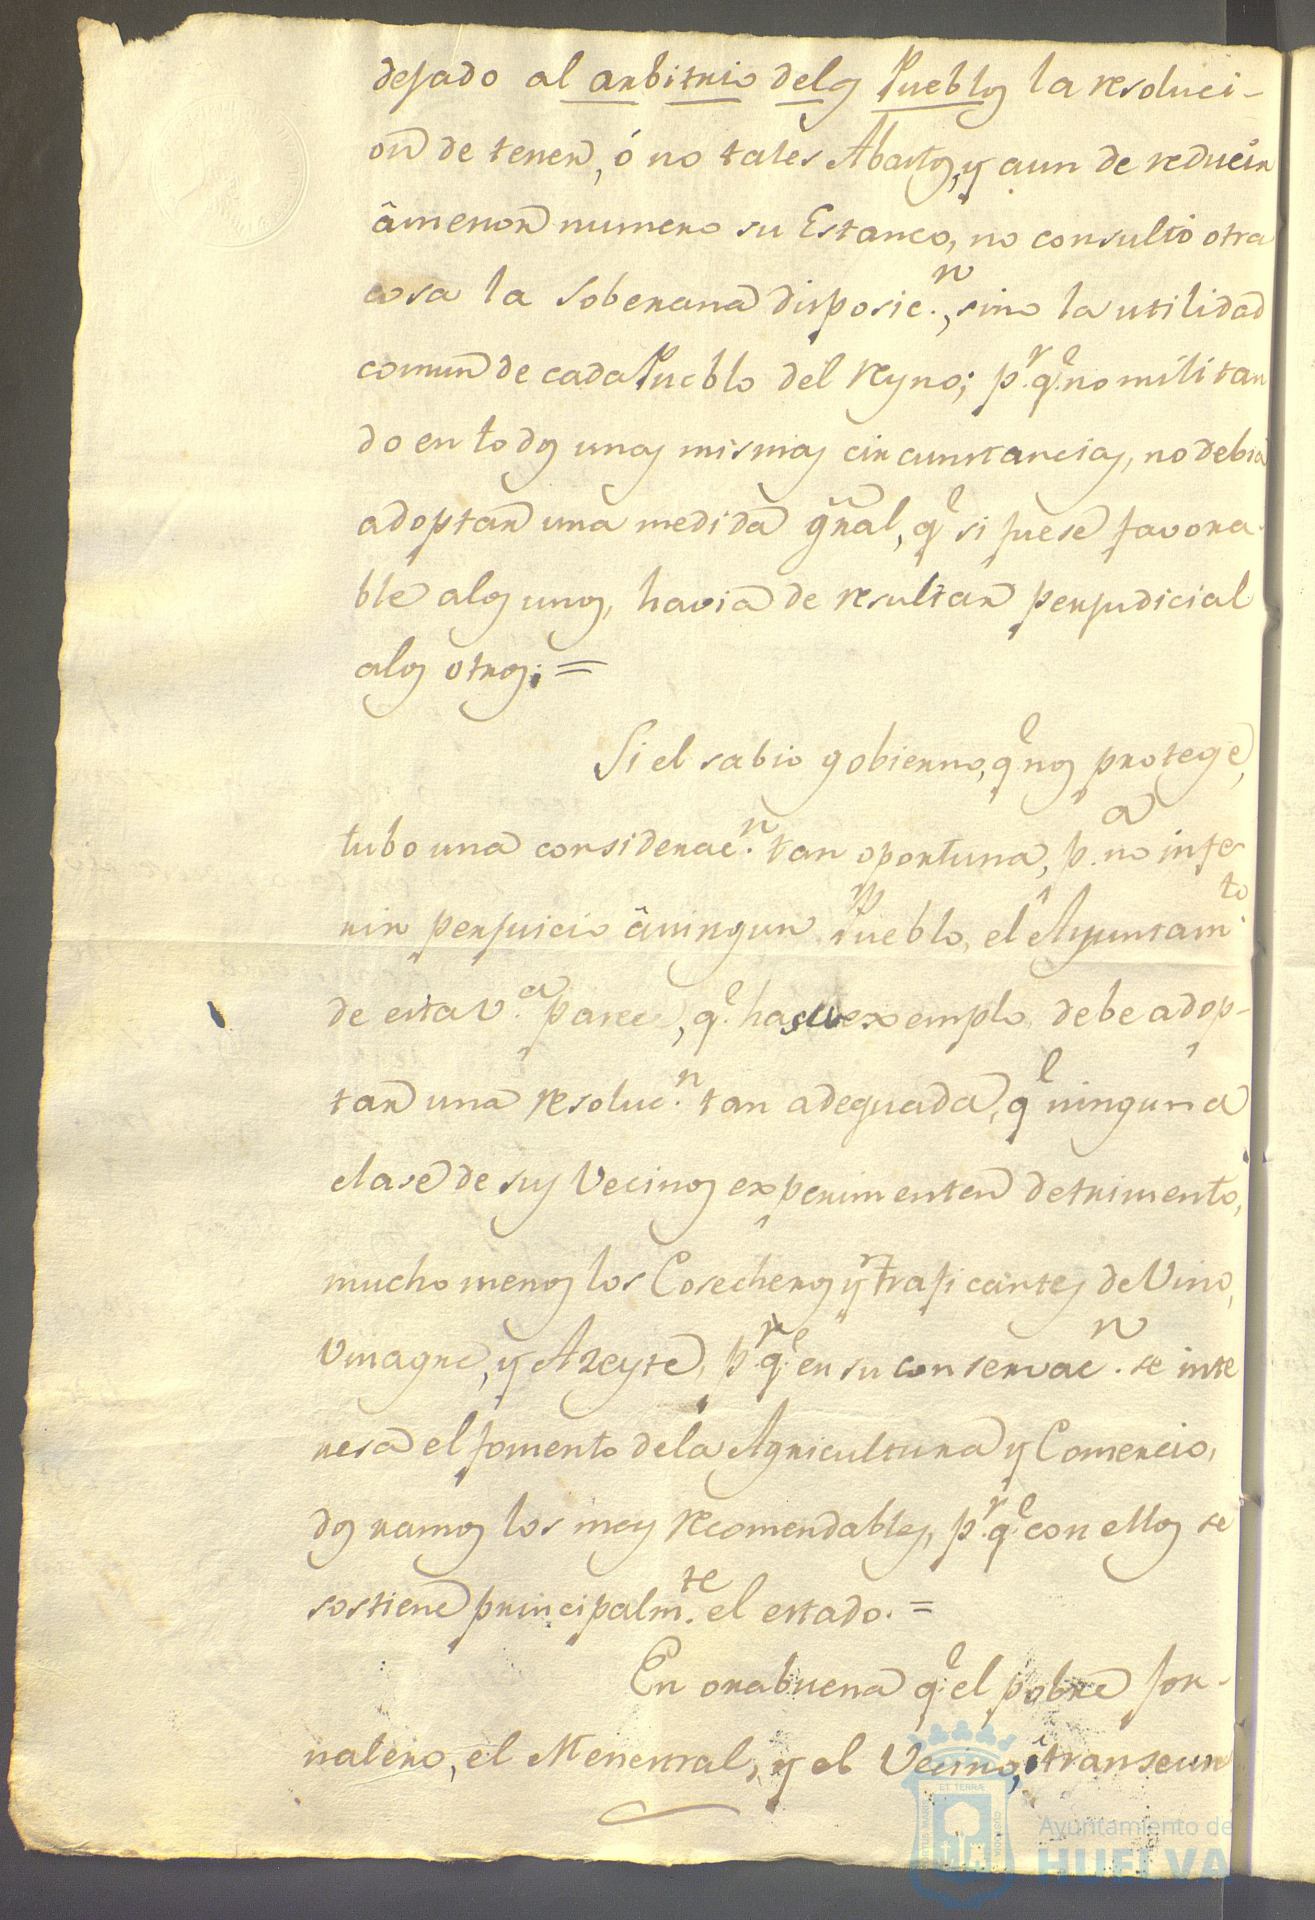 dejado al arbitrio delos Pueblos la resoluci-
on de tener, ó no tales Abastos, y aun de reducir
â menor numero su Estanco, no consultó otra
cosa la Soberana disposic.n, sino la utilidad
comun de cada Pueblo del Reyno; p.r q.e no militan
do en todos unas mismas circunstancias, no debia
adoptar una medida gral, q.e si fuese favora-
ble alos unos, havia de resultar perjudicial
alos otros; =
Si el sabio gobierno, q.e nos protege,
tubo una considerac.n tan oportuna, p.a no infe-
rir perjuicio â ningun Pueblo, el Ayuntam.to
de esta V.a parece, q.e ha su exemplo debe adop-
tar una resoluc.n tan adequada, q.e ninguna
clase de sus Vecinos experimenten detrimento,
mucho menos los Cosecheros y traficantes de Vino,
Vinagre, y Azeyte, p.r q.e en su conservac.n se inte
resa el fomento dela Agricultura y Comercio,
dos ramos los mas recomendables, p.r q.e con ellos se
sostiene principalm.te el estado. =
En orabuena q.e el pobre Jor-
nalero, el Menestral, y el Vecino, ô transeun
Ayuntamiento de
HUELVA